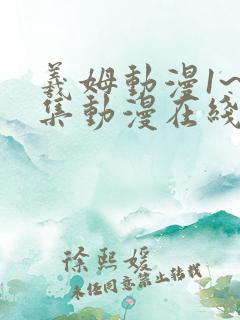 義姆動漫1~
集動漫在綫
徐熙媛
未経同意禁止轉載